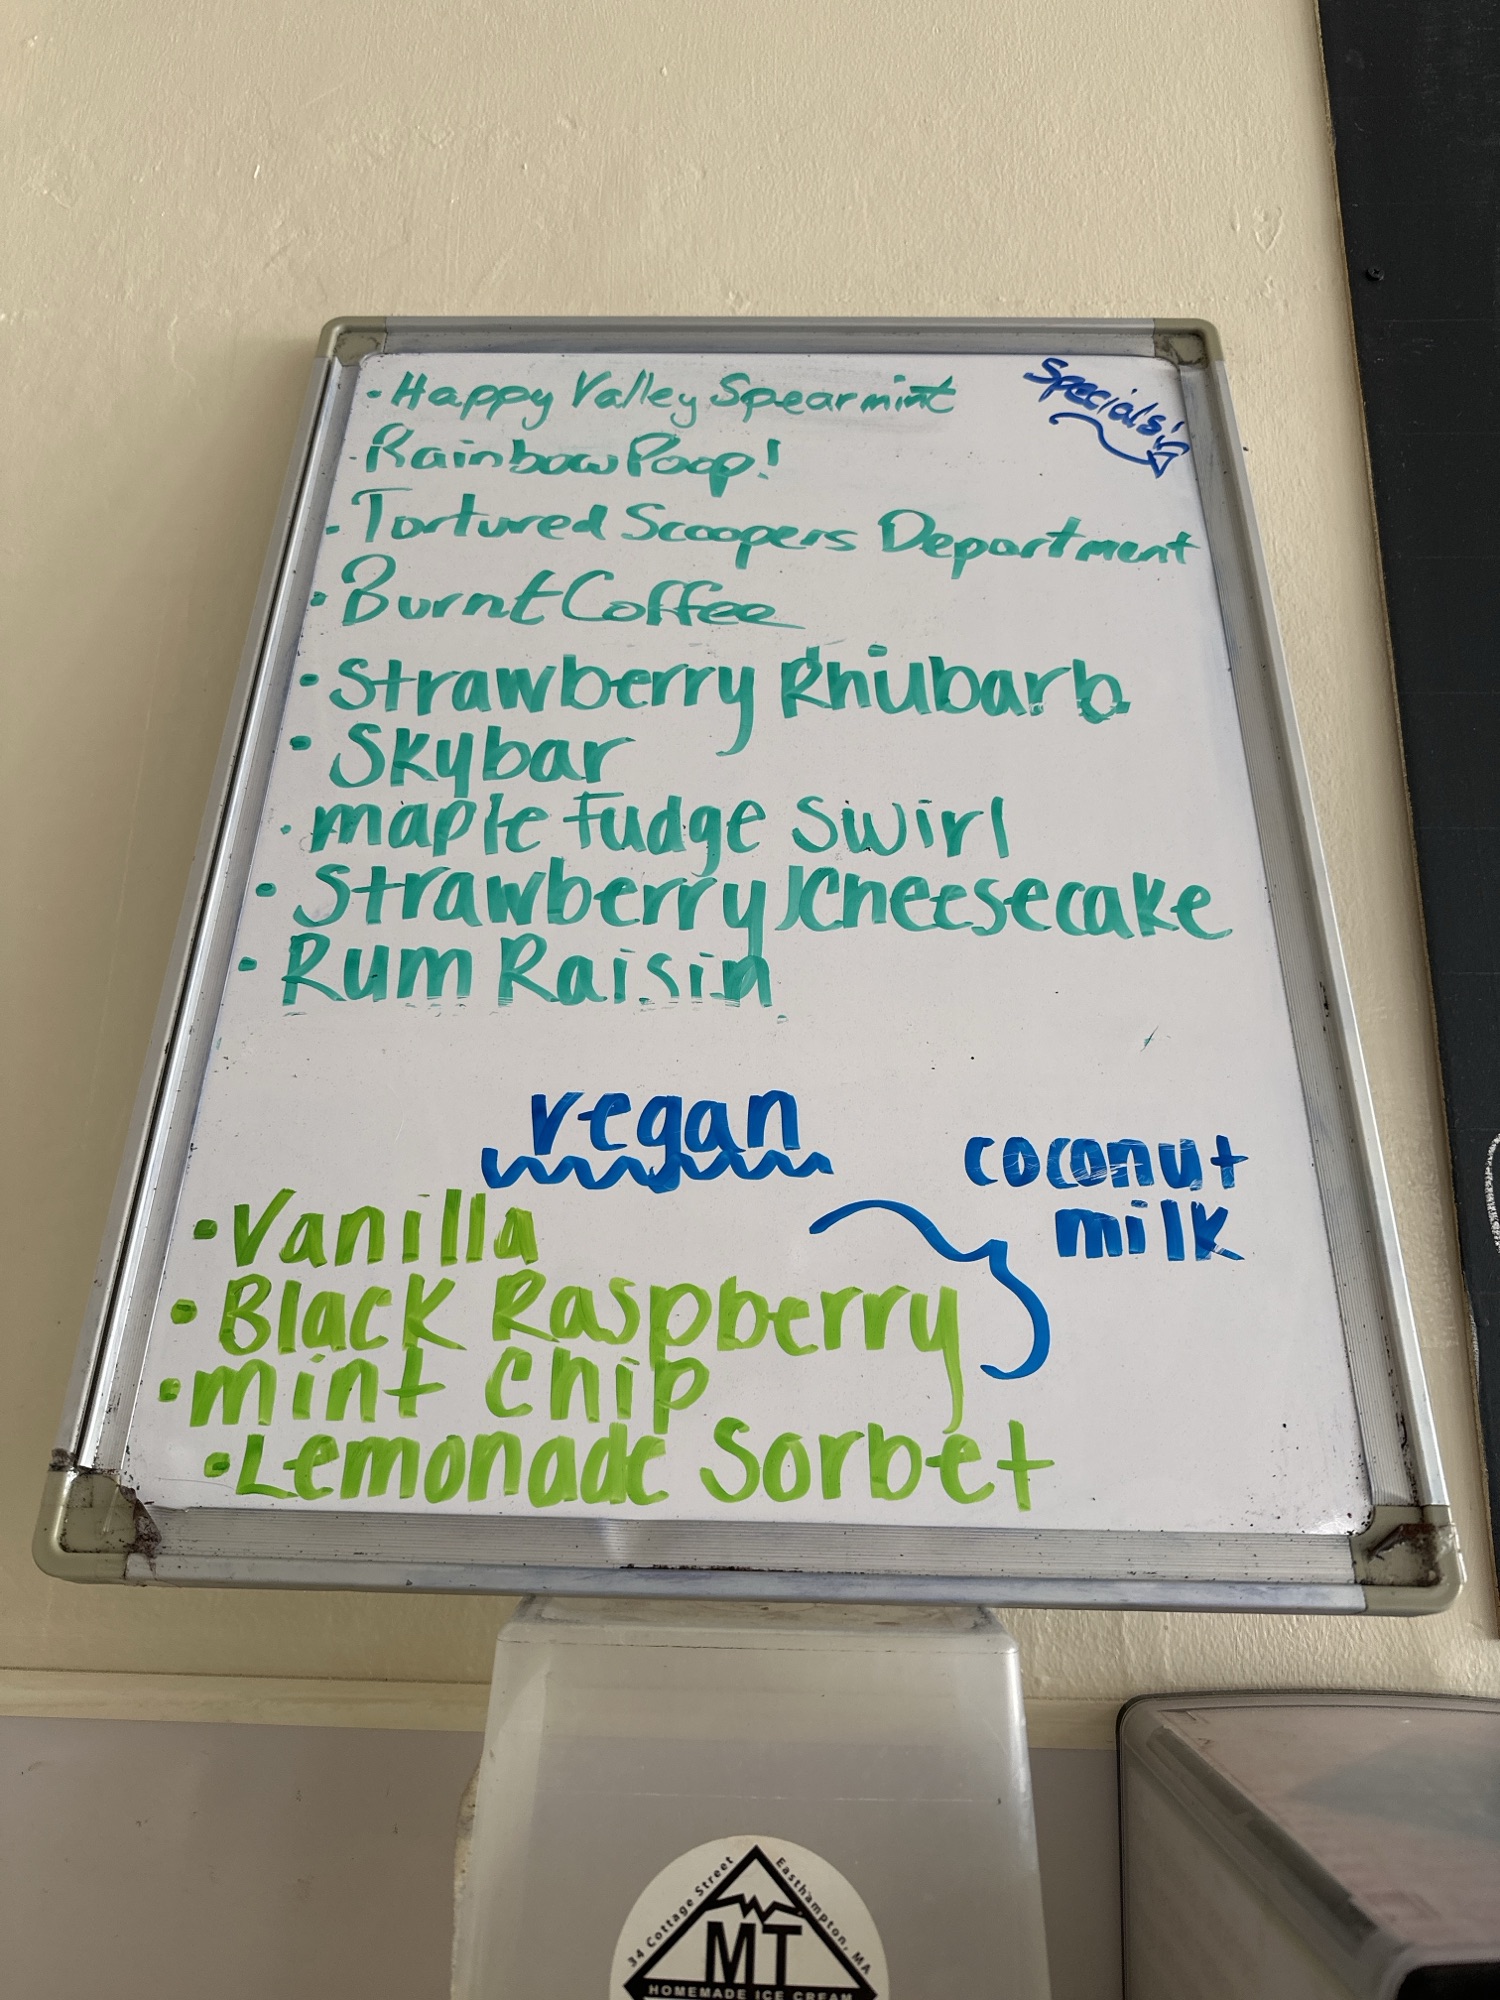 Specials!
• Happy Valley Spearmint
• Rainbow Poop!
• Tortured Scoopers Department
• Burnt Coffee
• Strawberry Rhubarb
• Skybar
• maple Fudge Swirl
• Strawberry Cheesecake
• Rum Raisin
vegan
coconut
milk
• Vanilla
• Black Raspberry
• mint chip
• Lemonade Sorbet
34 Cottage Street Easthampton, MA
MT
HOMEMADE ICE CREAM